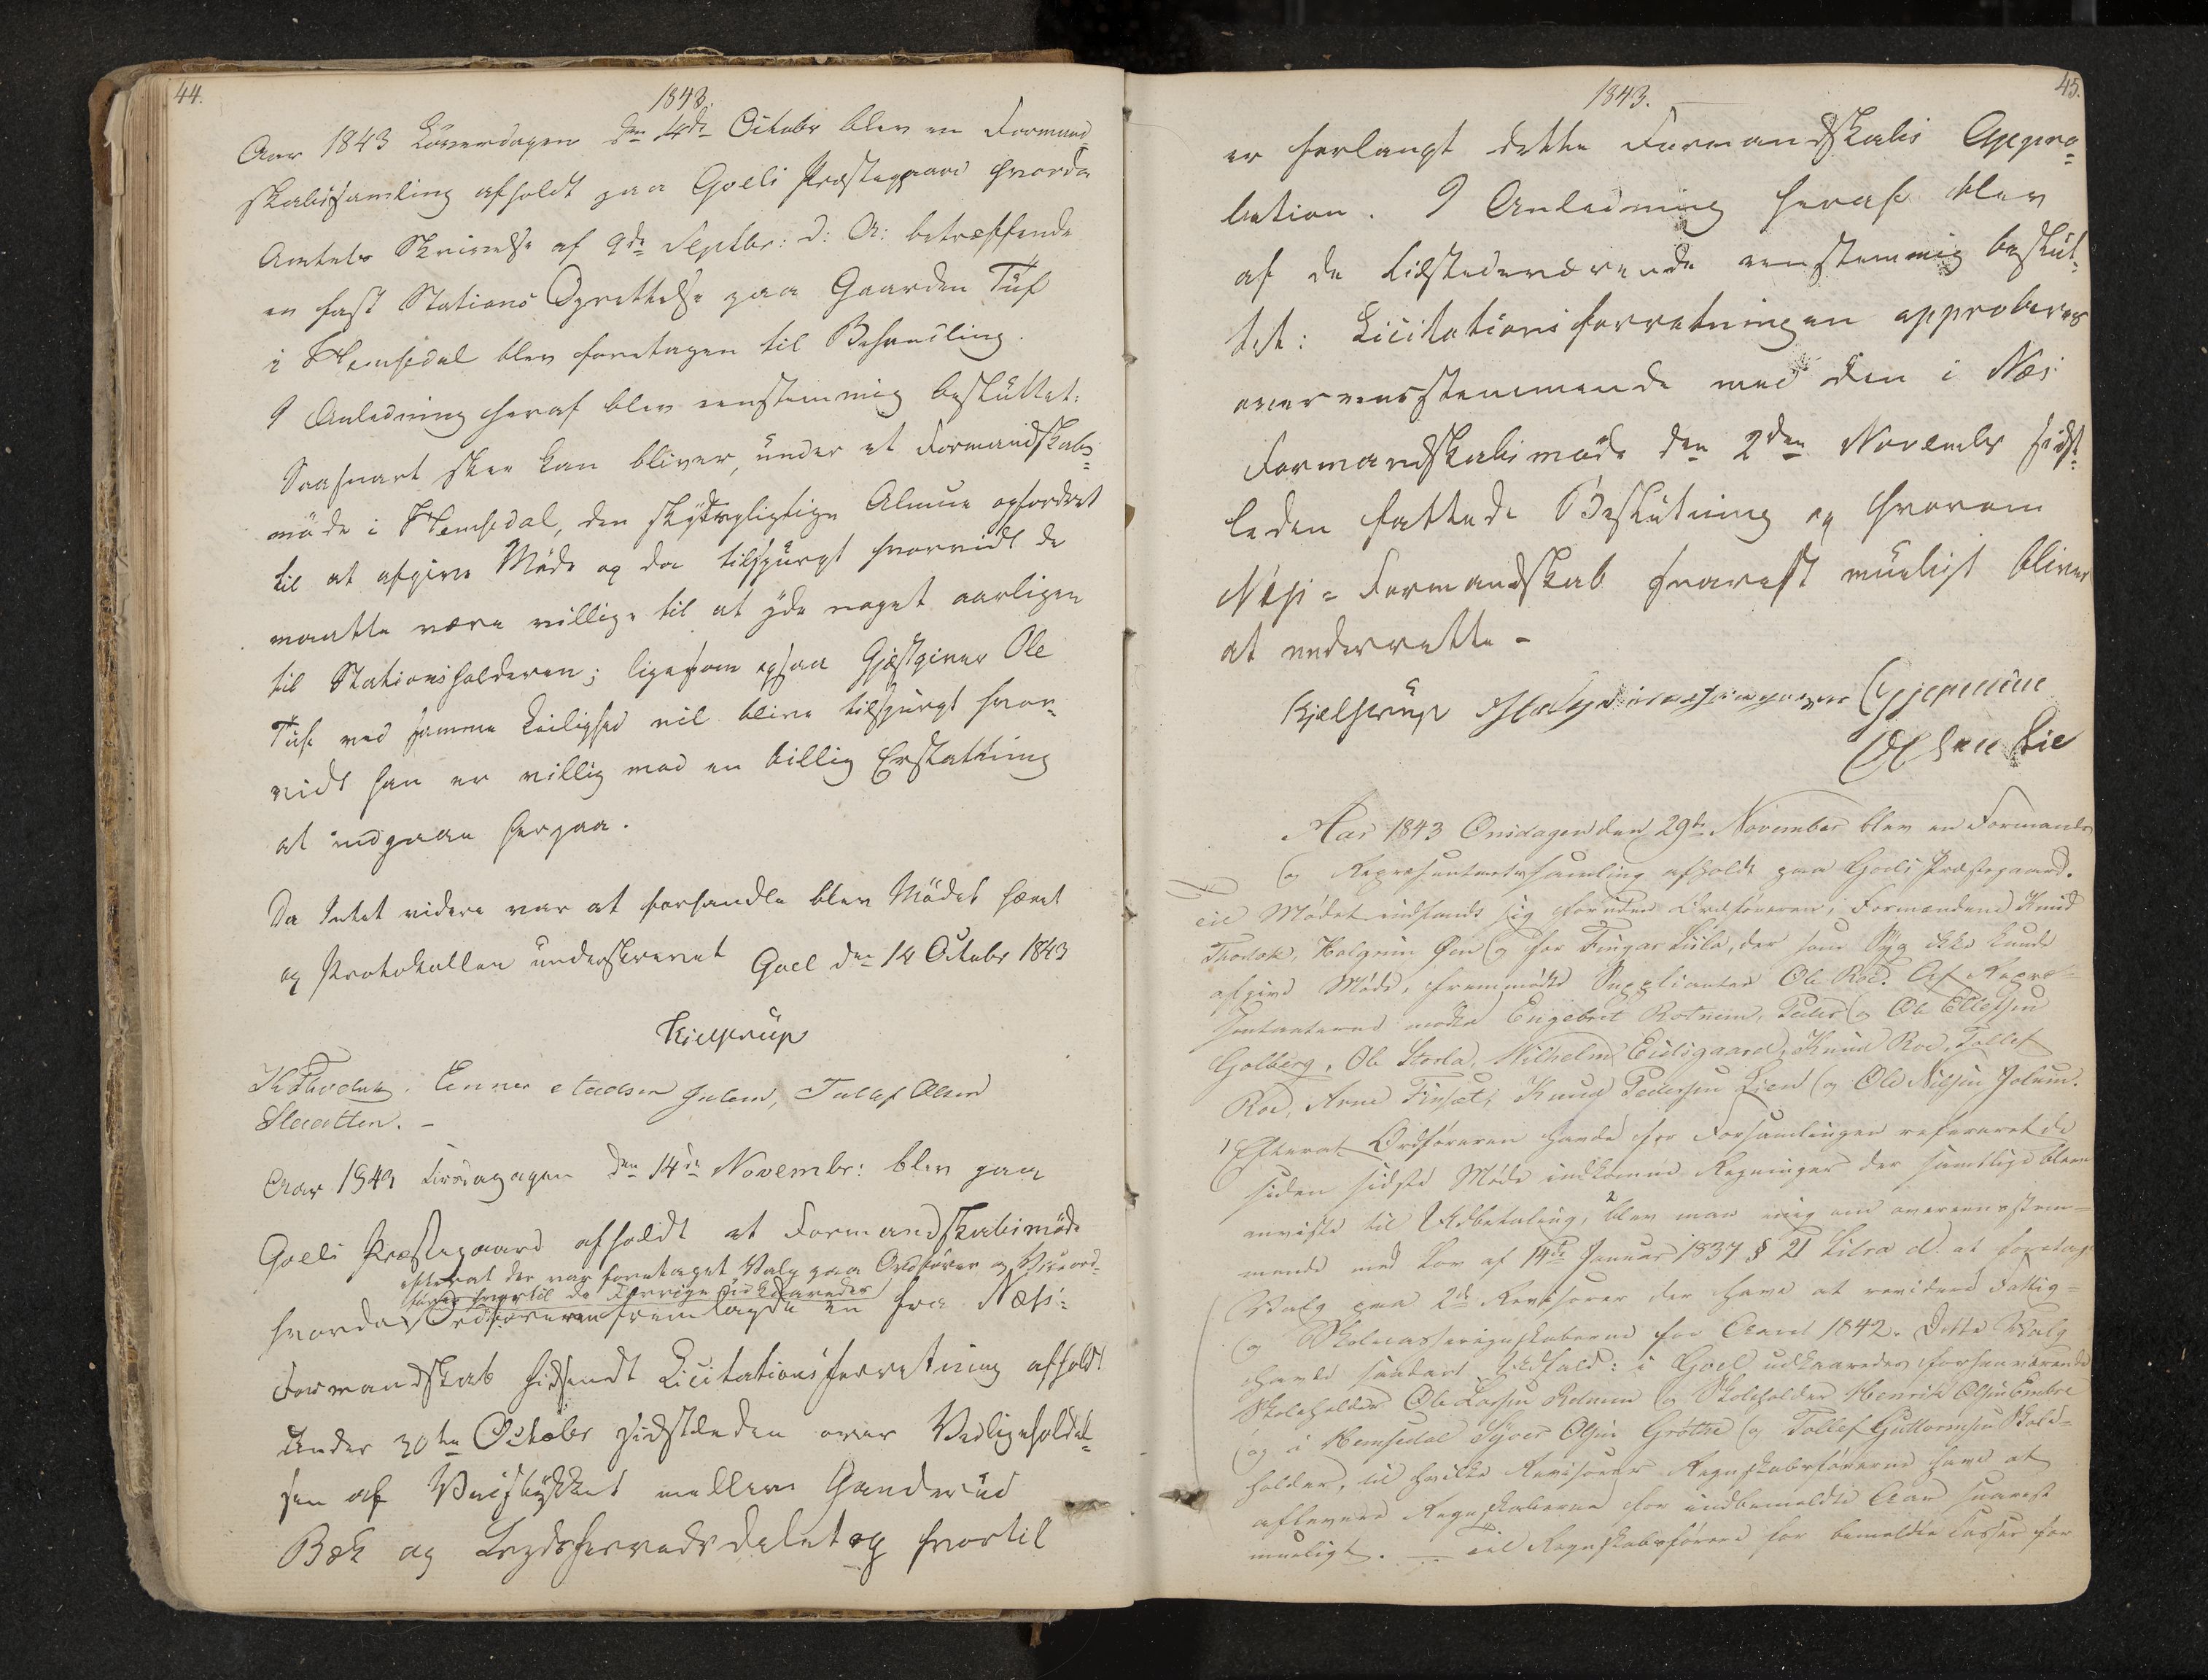 44.
1843.
Aar 1843 Löverdagen den 14de Octobr blev en Formand¬
skabssamling afholdt paa Goels Præstegaard hvorda
Amtets Skrivelse af 9de Septbr: d: A: betræffende
en fast Stations Oprettelse paa Gaarden Tuf
i Hemsedal blev foretagen til Behandling.
I Anledning heraf blev eenstemmig besluttet:
Saasnart skee kan bliver, under et Formandskabs=
möde i Hemsedal, den skydspligtige Almue opfordret
til at afgive Möde og da tilspurgt hvorvidt de
maatte være villige til at yde noget aarligen
til Stationsholderen; ligesom ogsaa Gjæstgiver Ole
Tuf ved samme Leilighed vil blive tilspurgt hvor¬
vidt han er villig mod en billig Erstatning
at indgaae herpaa.
Da Intet videre var at forhandle blev Mödet hævet
og Protokollen underskrevet Goel den 14 Octobr 1843
Kielstrup
K Thodok. Tollef Olsen
Slaatten. –
Aar 1843 Tirsdagagen den 14de Novembr: blev paa
Goels Præstegaard afholdt et Formandskabsmöde
efterat der var foretaget Valg paa Ordförer og Viceord¬
förer hvortil de Forrige udkaaredes
hvorda Ordföreren fremlagde en fra Næss=
Formandskab hidsendt Licitationsforretning afholdt
under 30te October sidstleden over Vedligeholdel¬
sen af Veistykket mellem Ganderud
Bæk og Lyds herreds delet og hvortil
1843.
45.
er forlangt dette Formandskabs Appro=
bation. I Anledning heraf blev
af de tilstedeværende eenstemmig beslut¬
tet: Licitationsforretningen approberes
overeensstemmende med den i Næs
Formandskabsmöde den 2den November sidst=
leden fattede Beslutning og hvorom
Næss=Formandskab snarest mueligt bliver
at underrette –
Kjelstrup
Olsen Lie
Aar 1843 Onsdagen den 29de November blev en Formands
og Repræsentantssamling afholdt paa Goels Præstegaard.
Til Mødet indfandt sig foruden Ordføreren, Formændene Knud
Thodok, Halgrim Øen og for Fingar Liila, der som Syg ikke kunde
afgive Møde, fremmødte Suppleanten Ole Roe. Af Repræ=
sentanterne mødte Engebret Rotneim, Peder og Ole Ellefsen
Golberg, Ole Storla, Wilhelm Eidsgaard, Knud Roe, Tollef
Roe, Arne Finset, Knud Pedersen Lien og Ole Nilsen Jolum.
1 Efterat Ordføreren havde for Forsamlingen refereret de
siden sidste Møde indkomne Regninger der samtlige bleve
anviste til Udbetaling, 2 blev man enig om overeensstem=
mende med Lov af 14de Januar 1837 § 21 Litra d. at foretage
Valg paa 2de Revisorer der have at revidere Fattig=
og Skolecasseregnskaberne for Aaret 1842. Dette Valg
havde saadant Udfald: i Goel udkaaredes forhenværende
Skoleholder Ole Larsen Rotneim og Skoleholder Henrik Olsen Embre
og i Hemsedal Syver Olsen Grøthe og Tollef Guttormsen Skole=
holder, til hvilke Revisorer Regnskabsførerne have at
aflevere Regnskaberne for indbemeldte Aar snarest
mueligt. — Til Regnskabsførere for bemeldte Casser for